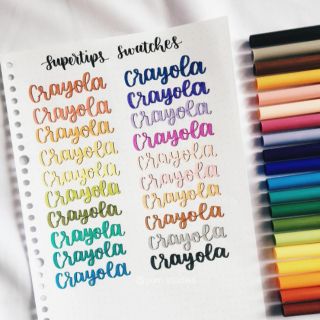 Supertips Swatches
Crayola Crayola
Crayola Crayola
Crayola Crayola
Crayola Crayola
Crayola Crayola
Crayola Crayola
Crayola Crayola
Crayola Crayola
Crayola Crayola
Crayola Crayola